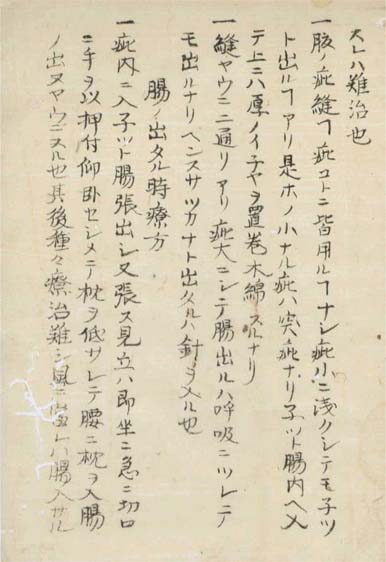 スレハ難治也
一腹ノ疵縫フ疵コトニ皆用ルヿナシ疵小ニ浅クシテモ子ツ
ト出ルヿアリ是ホノ小ナル疵ハ突疵ナリ子ツト腸内ヘ入
テ上ニハ原ノイ子ヤヲ置巻木綿スルナリ
一縫ヤウニ二通リアリ疵大ニシテ腸出ルハ呼吸ニツレテ
モ出ルナリヘンスサツカナト出タルハ針ヲ入ル也
腸ノ出タル時療方
一疵内ニ入子ツト腸張出シ又張ス見立ハ即坐ニ急ニ切口
ニ手ヲ以押付仰臥セシメテ枕ヲ低サレテ腰ニ枕ヲ入腸
ノ出ヌヤウニスル也其後種々療治難シ風ニ当レハ腸入サル